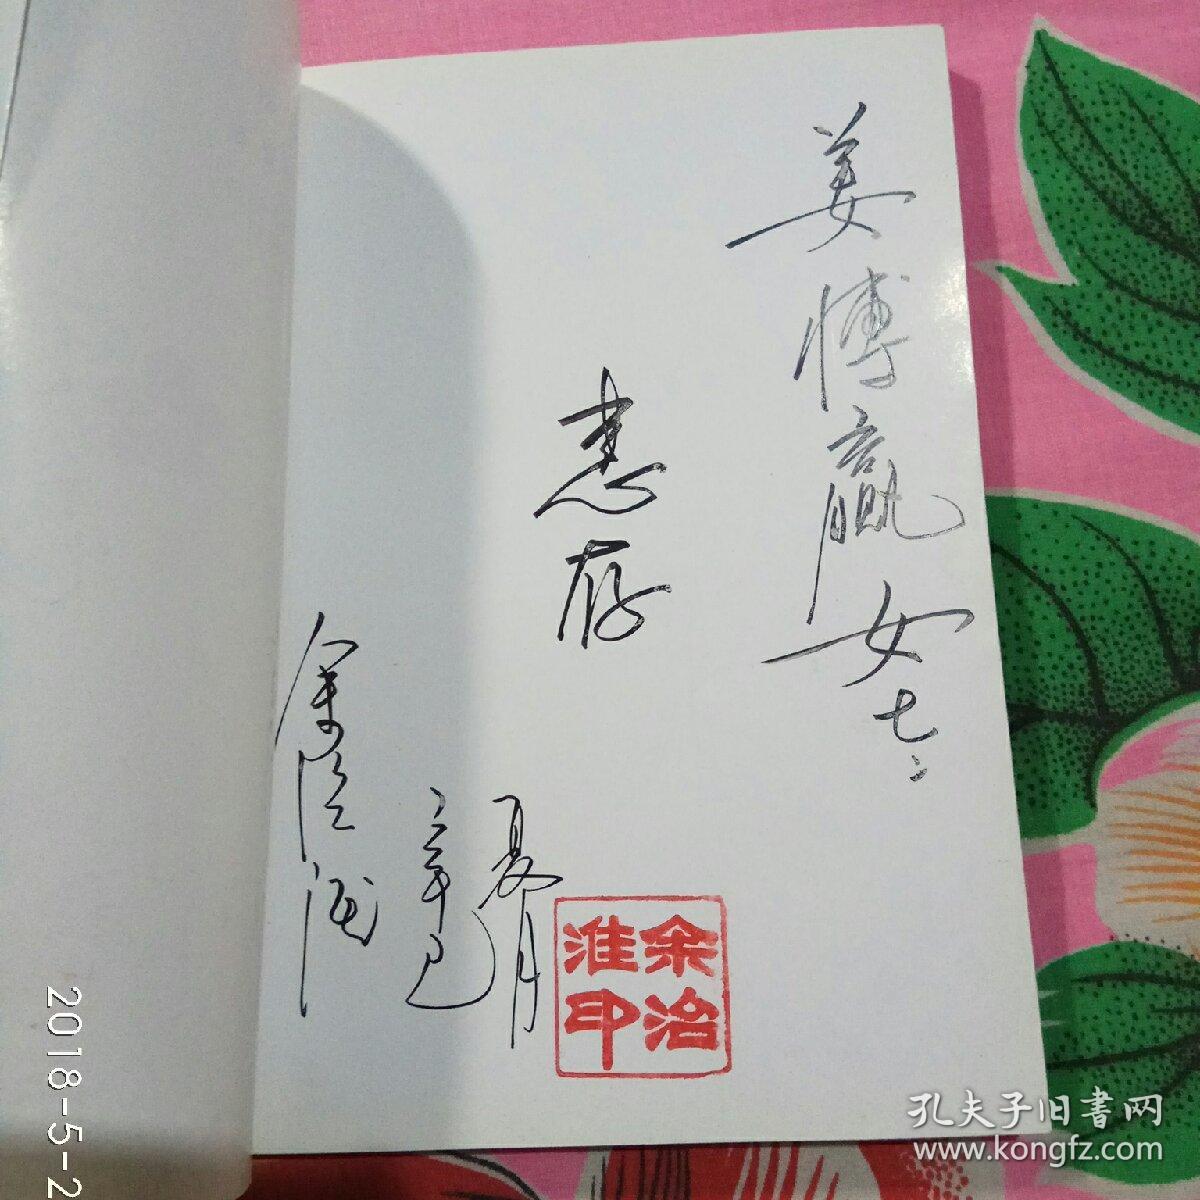 姜博赢女士:
惠存
余治淮
辛巳
夏月
余治
淮印
2018-5-2
孔夫子旧书网
www.kongfz.com